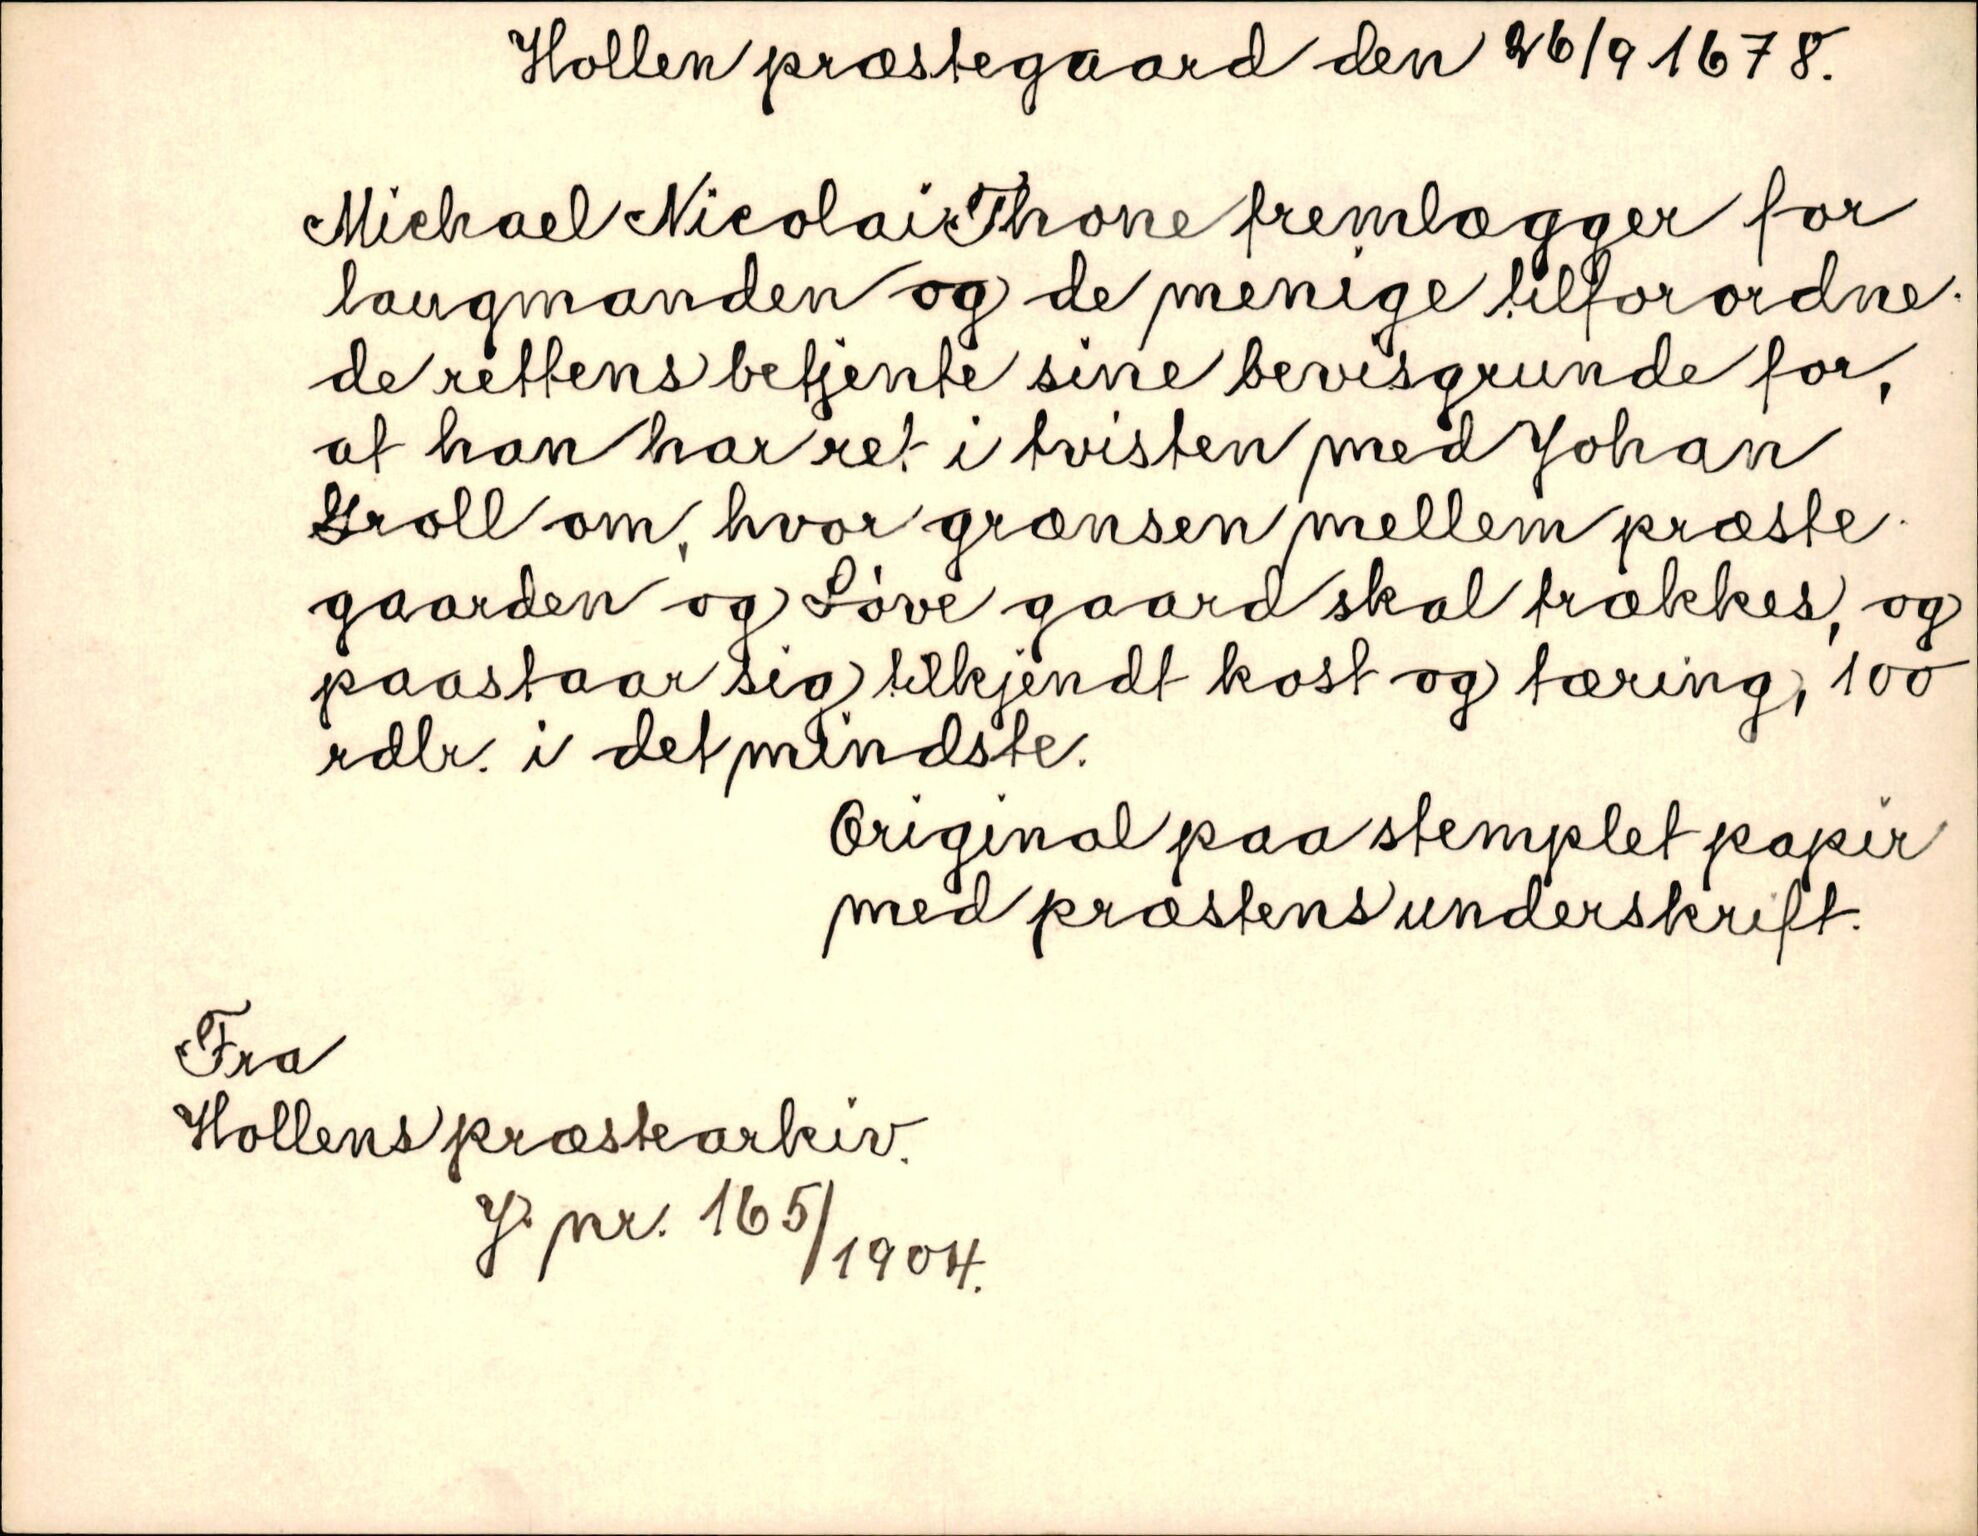 Hollen præstegaard den 26/9 1678.
Michael Nicolai Thone fremlægger for
laugmanden og de menige tilforordne-
de rettens betjente sine bevisgrunde for,
at han har ret i tvisten med Johan
Groll om, hvor grænsen mellem præste-
gaarden og Løve gaard skal trækkes, og
paastaar sig tilkjendt kost og tæring, 100
rdlr. i det mindste.
Original paa stemplet papir
med præstens underskrift.
Fra
Hollens præstearkiv.
J. nr. 165/1904.